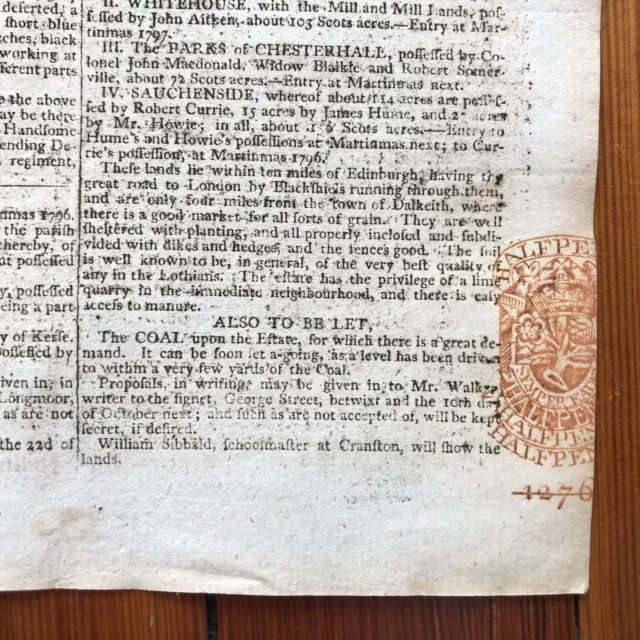 deserted, a
short blue
tches, black
working at
fferent parts
he above
may be there
Handsome
ending De-
regiment,
tinmas 1796.
the parish
thereby, of
at possessed
y, possessed
eing a part
y of Kerse.
possessed by
iven in, in
Longmoor,
as are not
the 22d of
II. WHITEHOUSE, with the Mill and Mill Lands, pos-
sessed by John Aitken, about 103 Scots acres.—Entry at Mar-
tinmas 1797.
III. The PARKS of CHESTERHALL, possessed by Co-
lonel John Macdonald, Widow Blaikie and Robert Somer-
ville, about 72 Scots acres.—Entry at Martinmas next.
IV. SAUCHENSIDE, whereof about 114 acres are posses-
sed by Robert Currie, 15 acres by James Hume, and 27 acres
by Mr. Howie; in all, about Scots acres.—Entry to
Hume's and Howie's possessions at Martinmas next; to Cur-
rie's possession, at Martinmas 1796.
These lands lie within ten miles of Edinburgh, having the
great road to London by Blackshiels running through them,
and are only four miles from the town of Dalkeith, where
there is a good market for all sorts of grain. They are well
sheltered with planting, and all properly inclosed and subdi-
vided with dikes and hedges, and the fences good. The soil
is well known to be, in general, of the very best quality of
any in the Lothians. The estate has the privilege of a lime
quarry in the immediate neighbourhood, and there is easy
access to manure.
ALSO TO BE LET,
The COAL upon the Estate, for which there is a great de-
mand. It can be soon set a-going, as a level has been driven
to within a very few yards of the Coal.
Proposals, in writing, may be given in to Mr. Walker
writer to the signet, George Street, betwixt and the 10th day
of October next; and such as are not accepted of, will be kept
secret, if desired.
William Sibbald, schoolmaster at Cranston, will show the
lands.
HALFPE
SEMPER EADEM
HALFPEN
HALFPEN
HALFPEN
1276